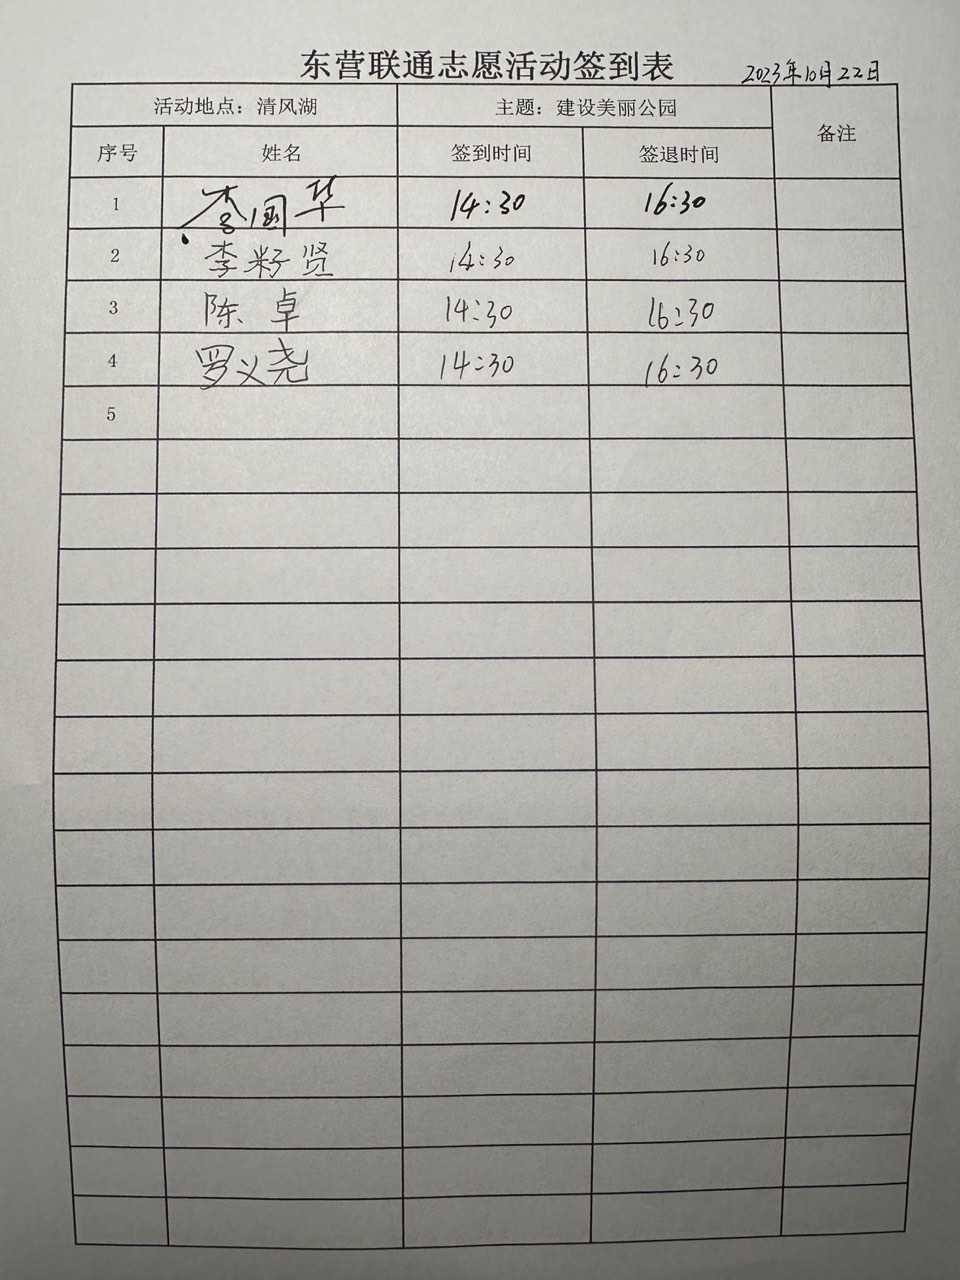 东营联通志愿活动签到表 2023年10月22日
活动地点：清风湖 主题：建设美丽公园 备注
序号 姓名 签到时间 签退时间
1 李国华 14:30 16:30
2 李籽贤 14:30 16:30
3 陈卓 14:30 16:30
4 罗义尧 14:30 16:30
5